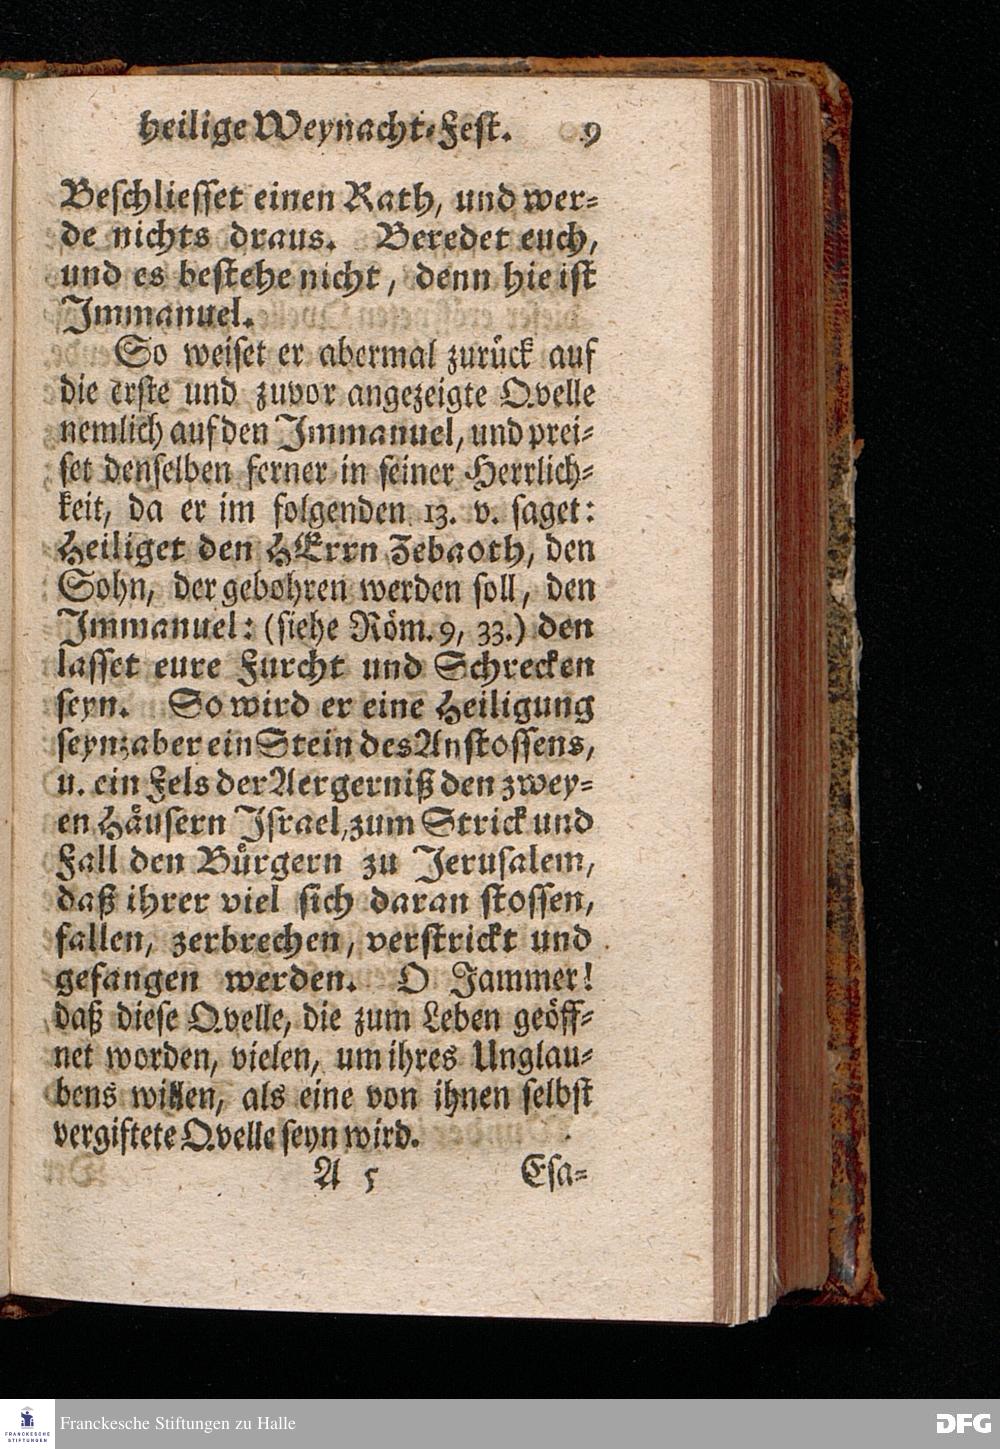 heilige Weynacht-Fest. 9
Beschliesset einen Rath, und wer-
de nichts draus. Beredet euch,
und es bestehe nicht, denn hie ist
Immanuel.
So weiset er abermal zurück auf
die erste und zuvor angezeigte Qvelle
nemlich auf den Immanuel, und prei-
set denselben ferner in seiner Herrlich-
keit, da er im folgenden 13. v. saget:
Heiliget den HErrn Zebaoth, den
Sohn, der gebohren werden soll, den
Immanuel: (siehe Röm. 9, 33.) den
lasset eure Furcht und Schrecken
seyn. So wird er eine Heiligung
seyn; aber ein Stein des Anstossens,
u. ein Fels der Aergerniß den zwey-
en Häusern Israel, zum Strick und
Fall den Bürgern zu Jerusalem,
daß ihrer viel sich daran stossen,
fallen, zerbrechen, verstrickt und
gefangen werden. O Jammer!
daß diese Qvelle, die zum Leben geöff-
net worden, vielen, um ihres Unglau-
bens willen, als eine von ihnen selbst
vergiftete Qvelle seyn wird.
A 5 Esa-
FRANCKESCHE
STIFTUNGEN
Franckesche Stiftungen zu Halle
DFG